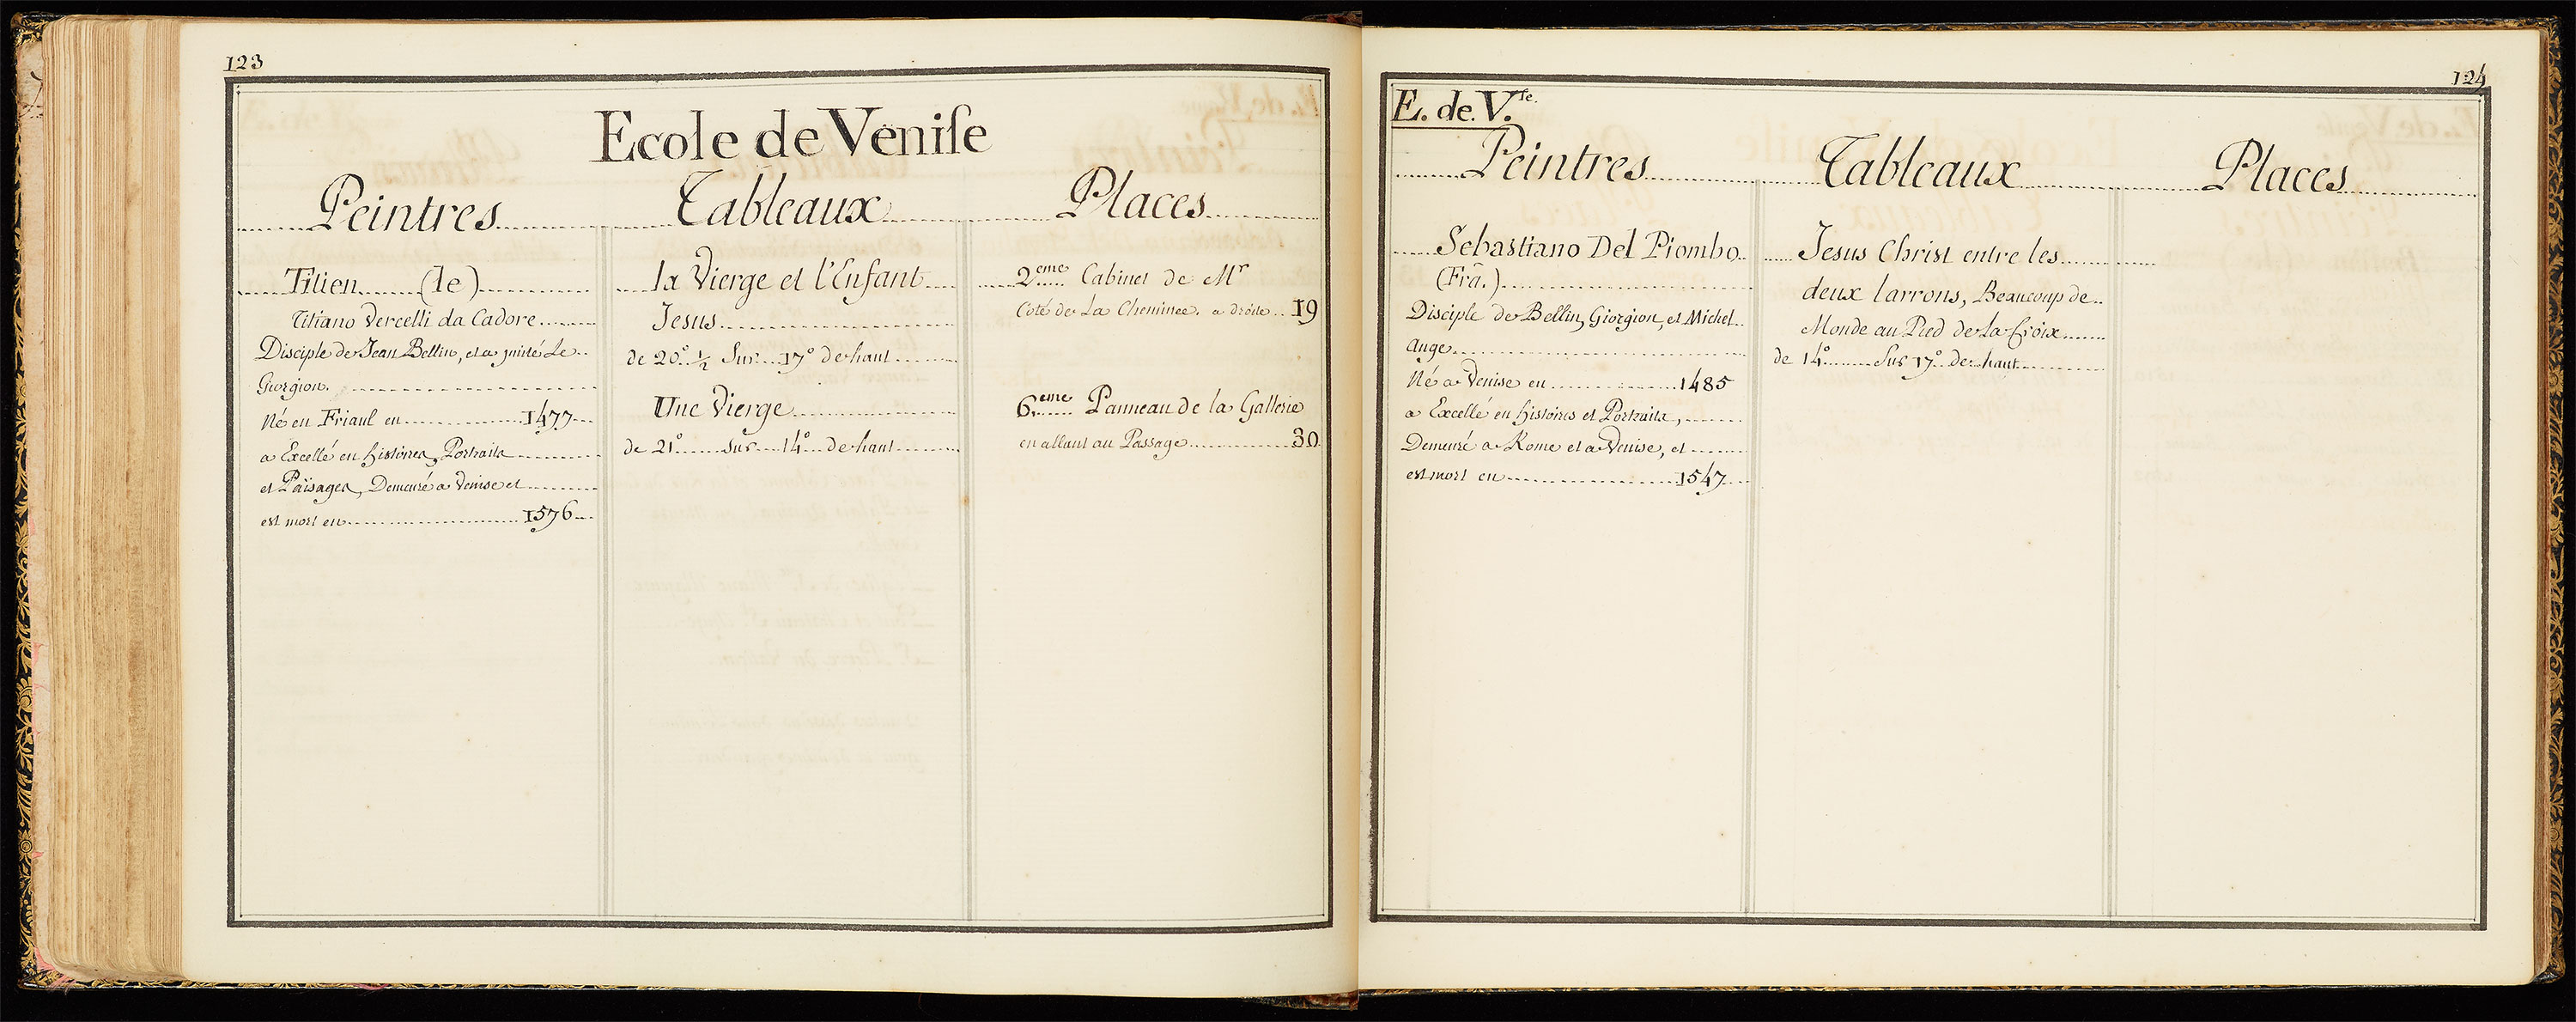 123
Ecole de Veniſe
Peintres Tableaux Places
Titien (le)
Titiano Vercelli da Cadore
Disciple de Jean Bellin, et a imité Le
Giorgion.
Né en Friaul en 1477
a Excellé en histoires, Portraits
et Païsages, Demeuré a Venise et
est mort en 1576
la Vierge et l'Enfant
Jesus
de 20° ½ Sur 17° de haut
Une Vierge
de 21° sur 14° de haut
2eme Cabinet de Mr
Coté de La Cheminée. a droite 19
6eme Panneau de la Gallerie
en allant au Passage 30
124
E. de. V.se.
Peintres Tableaux Places
Sebastiano Del Piombo
(Frã.)
Disciple de Bellin, Giorgion, et Michel
ange
Né a Venise en 1485
a Excellé en histoires et Portraits,
Demeuré a Rome et a Venise, et
est mort en 1547
Jesus Christ entre les
deux larrons, Beaucoup de
Monde au Pied de La Croix
de 14° Sur 17° de haut